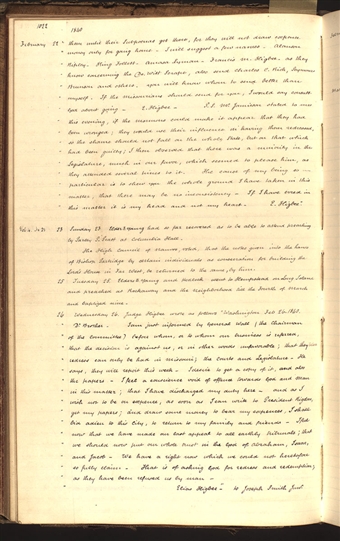 1022 1840
February 22 than until their Subpoenas get there, for they will not draw expense
money only for going home - I will suggest a few names. Alanson
Ripley, King Follett, Amasa Lyman - Francis M. Higbee, as they
know concerning the De Witt Scrape, also send Charles C. Rich, Seymour
Brunson and others, you will know whom to send better than
myself, if the missourians should send for you, I would say consult
God about going - E. Higbee - P.S. Mr Jamison stated to me
this evening, if the mormons could make it appear that they had
been wronged, they would use their influence in having them redressed,
so the shame should not fall on the whole state, but on that which
had been guilty; I then observed that there was a minority in the
Legislature, much in our favor, which seemed to please him, as
they attended several times to it. The cause of my being so
particular is to shew you the whole ground I have taken in this
matter, that there may be no inconsistency - If I have erred in
this matter it is my head and not my heart. E. Higbee"
23 Sunday 23. Elder Young had so far recovered as to be able to attend preaching
by Parley P. Pratt at Columbia Hall.
The High Council of Nauvoo, voted, that the notes given into the hands
of Bishop Partridge by certain individuals as consecration for building the
Lord's House in Far West, be returned to the same, by him.
25 Tuesday 25. Elders Young and
and preached at Rockaway and the neighborhood till the fourth of March
and baptized nine.
26 Wednesday 26. Judge Higbee wrote as follows "Washington Feb 26 1840.
Dr Brother - I am just informed by General Wall (the Chairman
of the Committee) before whom, or to whom our business is referred,
that the decision is against us, or in other words unfavorable; that they believe
redress can only be had in Missouri; the Courts and Legislature - He
says, they will report this week - I desire to get a copy of it, and also
the papers - I feel a conscience void of offence towards God and man
in this matter; that I have discharged my duty here - and as I
wish not to be an expense, as soon as I can write to President Rigdon,
get my papers; and draw some money to bear my expenses, I shall
bid adieu to this City, to return to my family and friends - I feel
now that we have made our last appeal to all earthly tribunals; that
we should now put our whole trust in the God of Abraham, Isaac,
and Jacob - We have a right now which we could not heretofore
so fully claim - That is of asking God for redress and redemption,
as they have been refused us by man -
Elias Higbee" to Joseph Smith Junr.